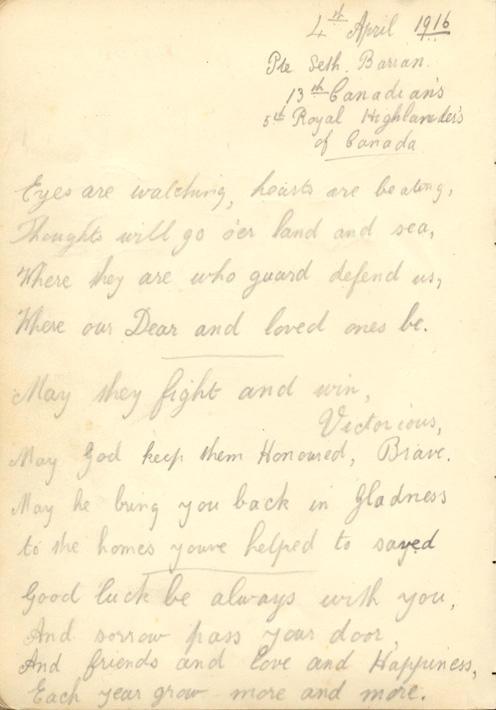 4th April 1916
Pte Seth. Barian.
13th Canadian's
5th Royal Highlander's
of Canada
Eyes are watching, hearts are beating,
Thoughts will go o'er land and sea,
Where they are who guard defend us,
Where our Dear and loved ones be.
May they fight and win,
Victorious,
May God keep them Honoured, Brave.
May he bring you back in Gladness
to the homes youve helped to sayed
Good luck be always with you,
And sorrow pass your door,
And friends and love and Happiness,
Each year grow more and more.